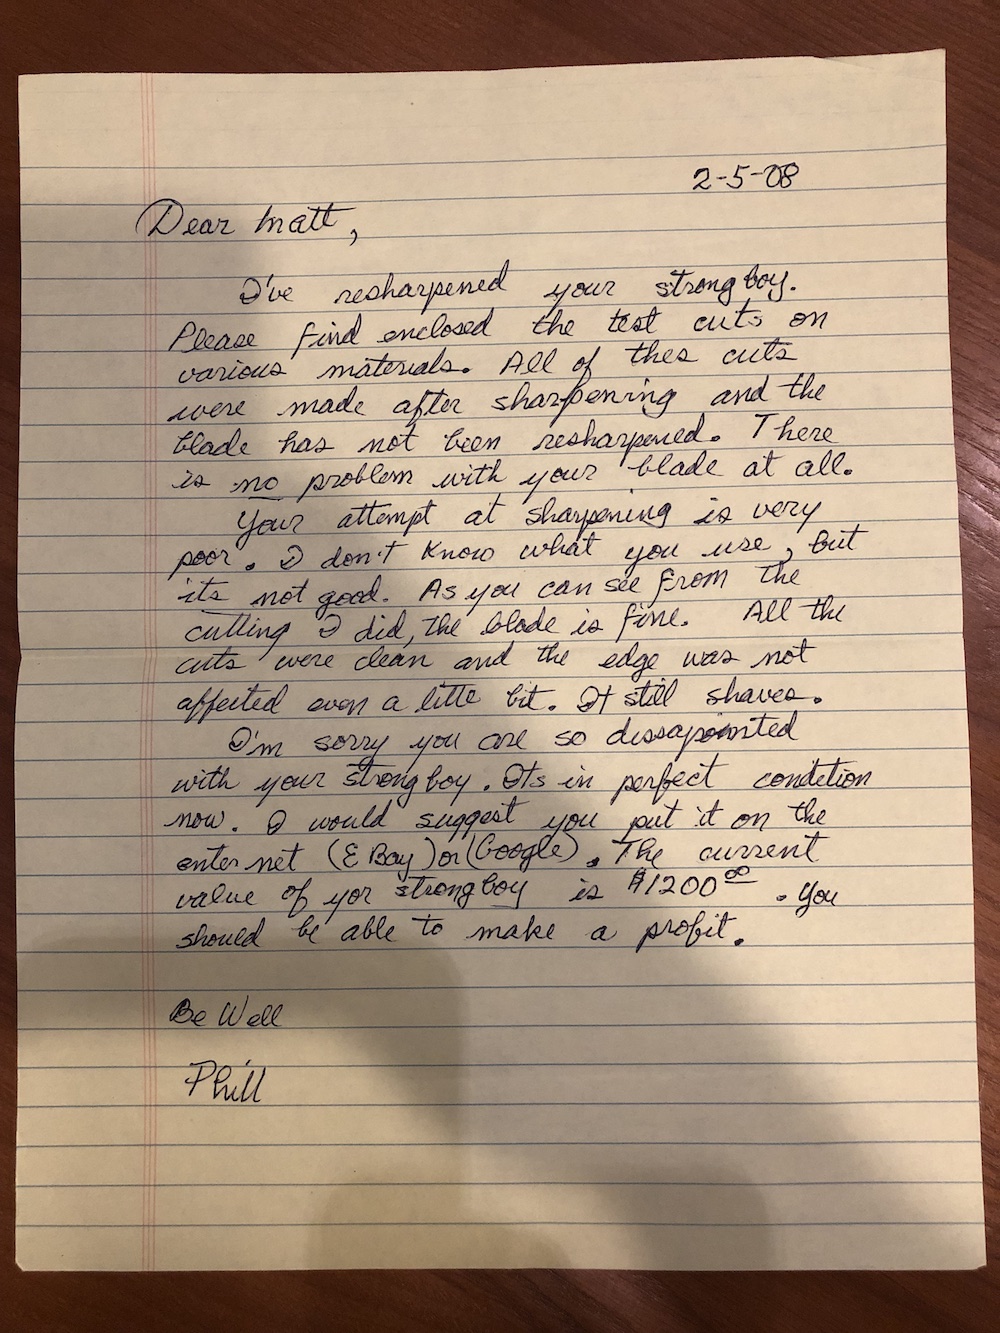 2-5-08
Dear Matt,
I've resharpened your strongboy.
Please find enclosed the test cuts on
various materials. All of thes cuts
were made after sharpening and the
blade has not been resharpened. There
is no problem with your blade at all.
Your attempt at sharpening is very
poor. I don't know what you use, but
its not good. As you can see from the
cutting I did, the blade is fine. All the
cuts were clean and the edge was not
affected even a litte bit. It still shaves.
I'm sorry you are so dissapointed
with your strongboy. Its in perfect condition
now. I would suggest you put it on the
enternet (E Bay) or (Google). The current
value of yor strongboy is $1200 00. You
should be able to make a profit.
Be Well
Phill